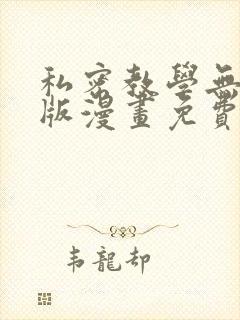 私密教學無
版漫畫免費
韦龍却